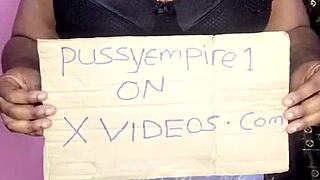 pussyempire1
ON
X VIDEOS.Com